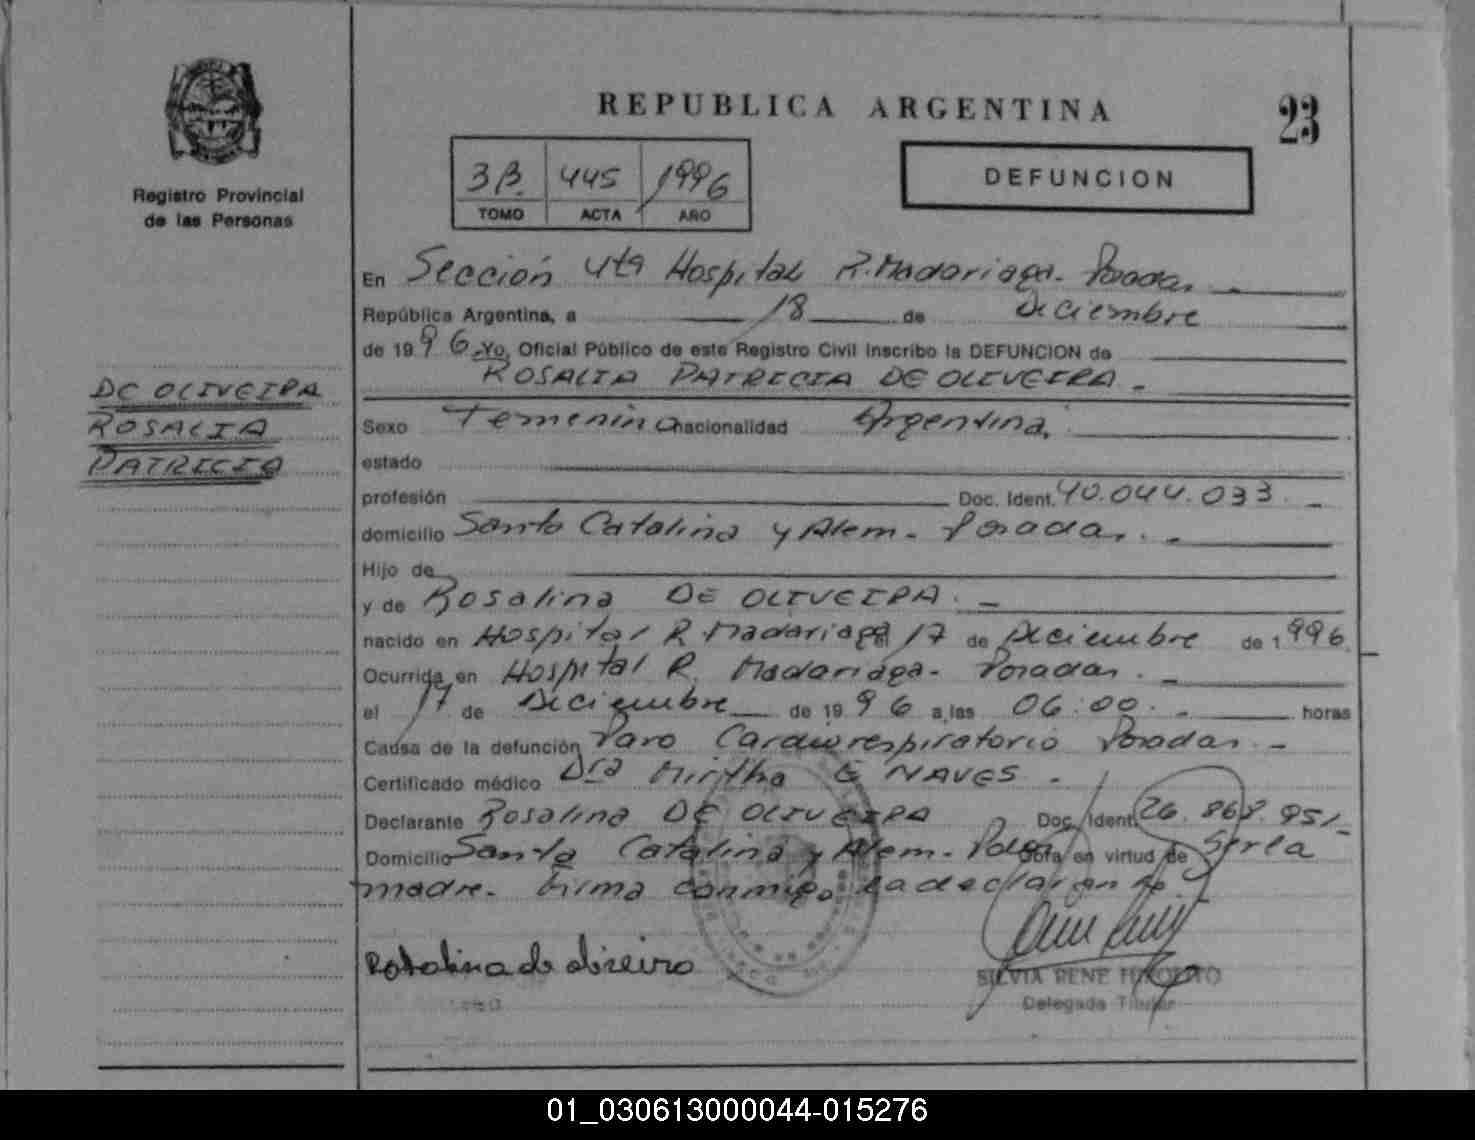 REPUBLICA ARGENTINA
23
Registro Provincial
de las Personas
3B. 445 1996
TOMO ACTA AÑO
DEFUNCION
DE OLIVEIRA
ROSALIA
PATRICIA
En Sección 4ta Hospital R. Madariaga. Posadas. -
República Argentina, a 18 de Diciembre
de 1996. Yo, Oficial Público de este Registro Civil inscribo la DEFUNCION de
ROSALIA PATRICIA DE OLIVEIRA. -
Sexo Femenino nacionalidad Argentina.
estado
profesión Doc. Ident. 40.044.033. -
domicilio Santa Catalina y Alem - Posadas. -
Hijo de
y de Rosalina DE OLIVEIRA. -
nacido en Hospital R. Madariaga el 17 de Diciembre de 1996.
Ocurrida en Hospital R. Madariaga - Posadas. -
el 17 de Diciembre de 1996 a las 06:00. - horas
Causa de la defunción Paro Cardiorespiratorio Posadas. -
Certificado médico Dra Mirtha E NAVES.
Declarante Rosalina DE OLIVEIRA Doc. Ident. 26.868.951-
Domicilio Santa Catalina y Alem - en virtud de Ser la
madre. Firma conmigo la declarante.
SILVIA RENE HIPOLITO
Delegada Titular
01_030613000044-015276